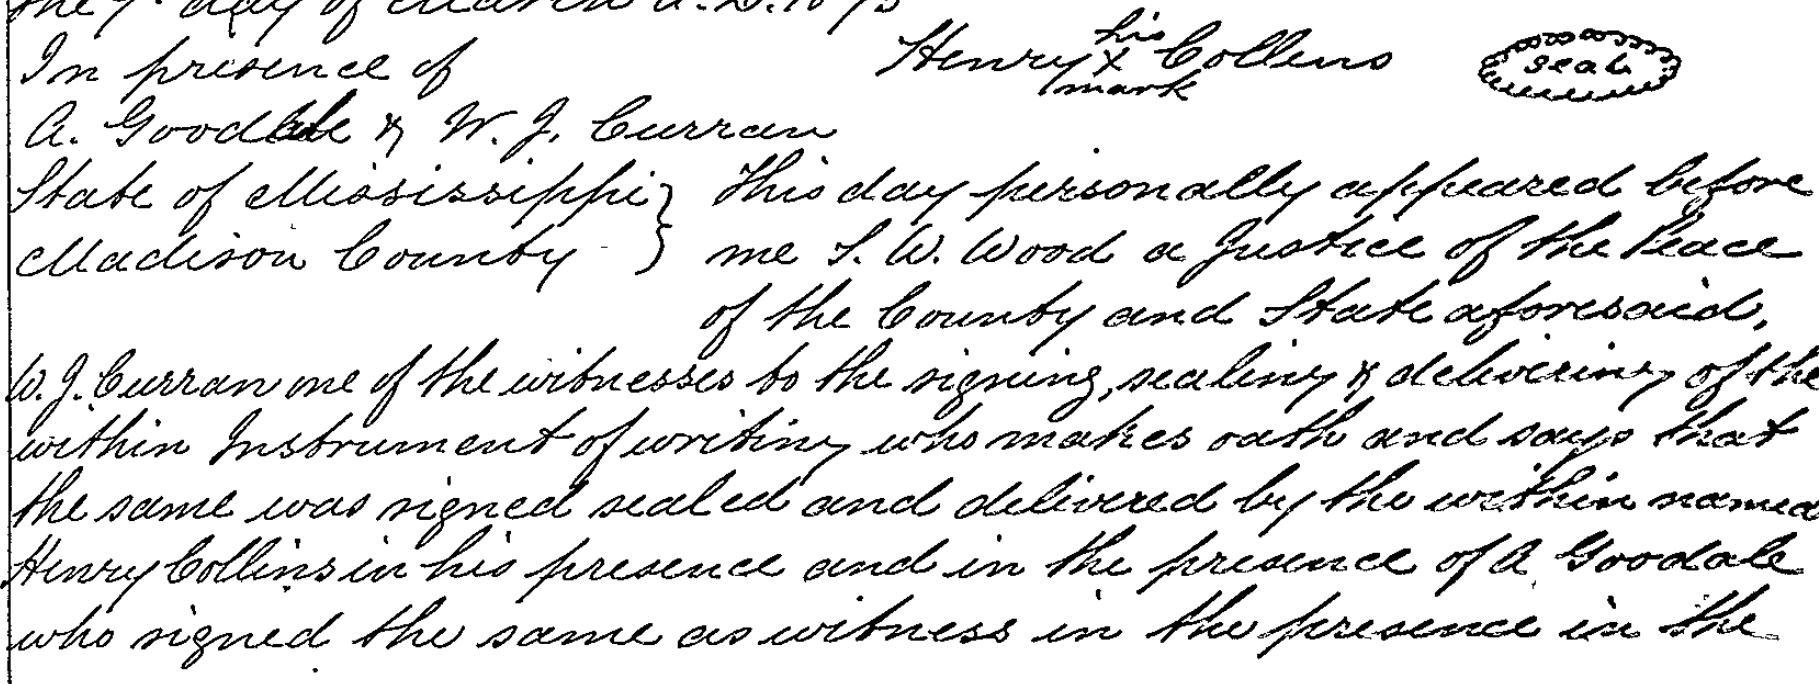 the 7th day of March A.D. 1875
In presence of Henry his x mark Collens seal
A. Goodale & W. J. Curran
State of Mississippi } This day personally appeared before
Madison County } me S. W. Wood a Justice of the Peace
of the County and State aforesaid,
W. J. Curran one of the witnesses to the signing, sealing & delivering of the
within Instrument of writing who makes oath and says that
the same was signed sealed and delivered by the within named
Henry Collins in his presence and in the presence of A Goodale
who signed the same as witness in the presence in the